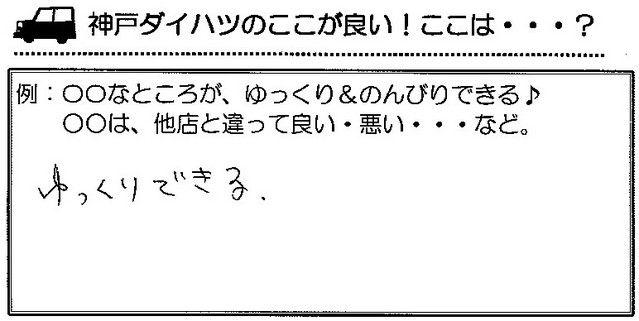 神戸ダイハツのここが良い！ここは・・・？
例：〇〇なところが、ゆっくり＆のんびりできる♪
〇〇は、他店と違って良い・悪い・・・など。
ゆっくりできる.